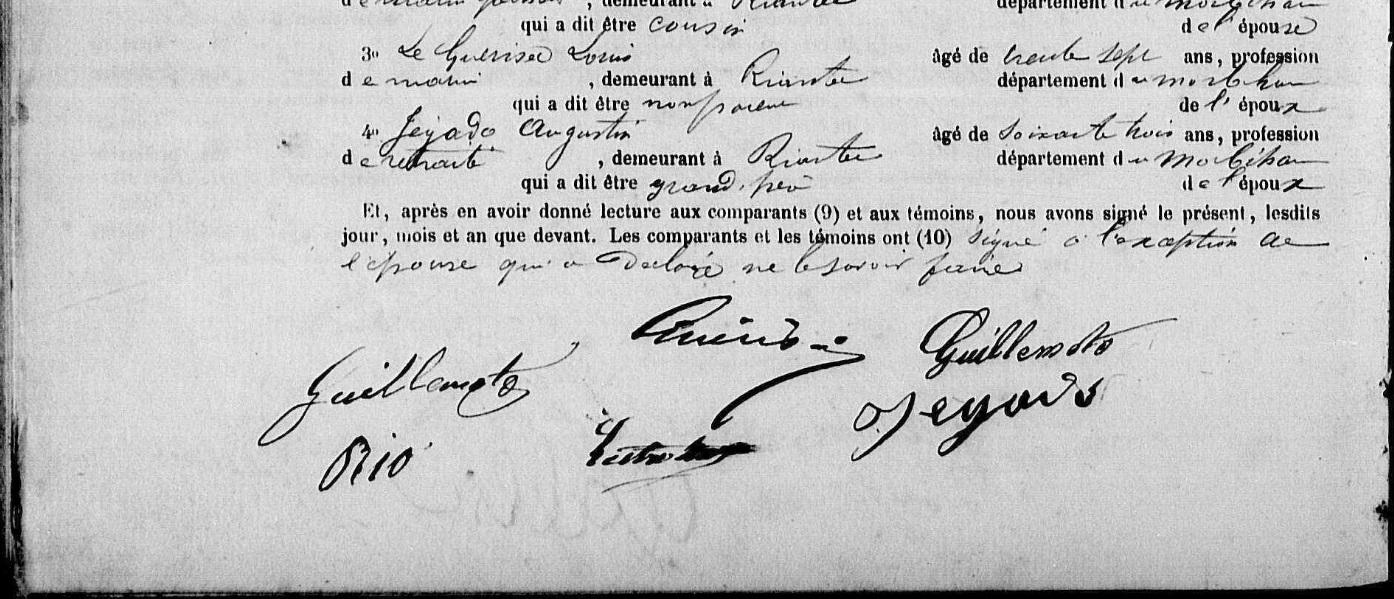 demeurant à Riantec département du Morbihan
qui a dit être cousin de l'épouse
3° Le Guériser Louis âgé de trente sept ans, profession
de marin , demeurant à Riantec département du Morbihan
qui a dit être non parent de l'époux
4° Jégado Augustin âgé de soixante trois ans, profession
de retraité , demeurant à Riantec département du Morbihan
qui a dit être grand-père de l'époux
Et, après en avoir donné lecture aux comparants (9) et aux témoins, nous avons signé le présent, lesdits
jour, mois et an que devant. Les comparants et les témoins ont (10) signé à l'exception de
l'épouse qui a déclaré ne le savoir faire
Guillemoto
Guillemoto
Jégado
Rio